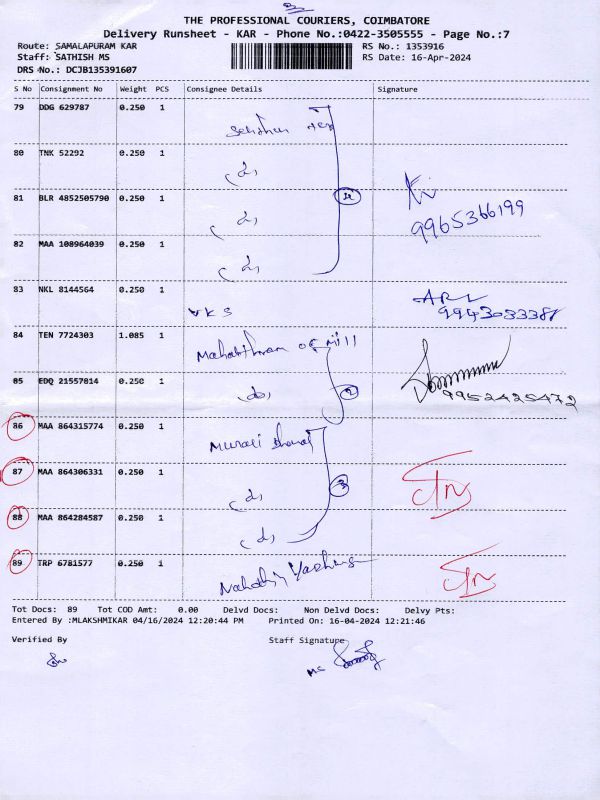 THE PROFESSIONAL COURIERS, COIMBATORE
Delivery Runsheet - KAR - Phone No.:0422-3505555 - Page No.:7
Route: SAMALAPURAM KAR RS No.: 1353916
Staff: SATHISH MS RS Date: 16-Apr-2024
DRS No.: DCJB135391607
S No Consignment No Weight PCS Consignee Details Signature
79 DDG 629787 0.250 1
80 TNK 52292 0.250 1
81 BLR 4852505790 0.250 1
9965366199
82 MAA 108964039 0.250 1
83 NKL 8144564 0.250 1 VKS
84 TEN 7724303 1.085 1
85 EDQ 21557814 0.250 1 2 9952425472
86 MAA 864315774 0.250 1 Murali
87 MAA 864306331 0.250 1 3
88 MAA 864284587 0.250 1
89 TRP 6781577 0.250 1
Tot Docs: 89 Tot COD Amt: 0.00 Delvd Docs: Non Delvd Docs: Delvy Pts:
Entered By :MLAKSHMIKAR 04/16/2024 12:20:44 PM Printed On: 16-04-2024 12:21:46
Verified By Staff Signature